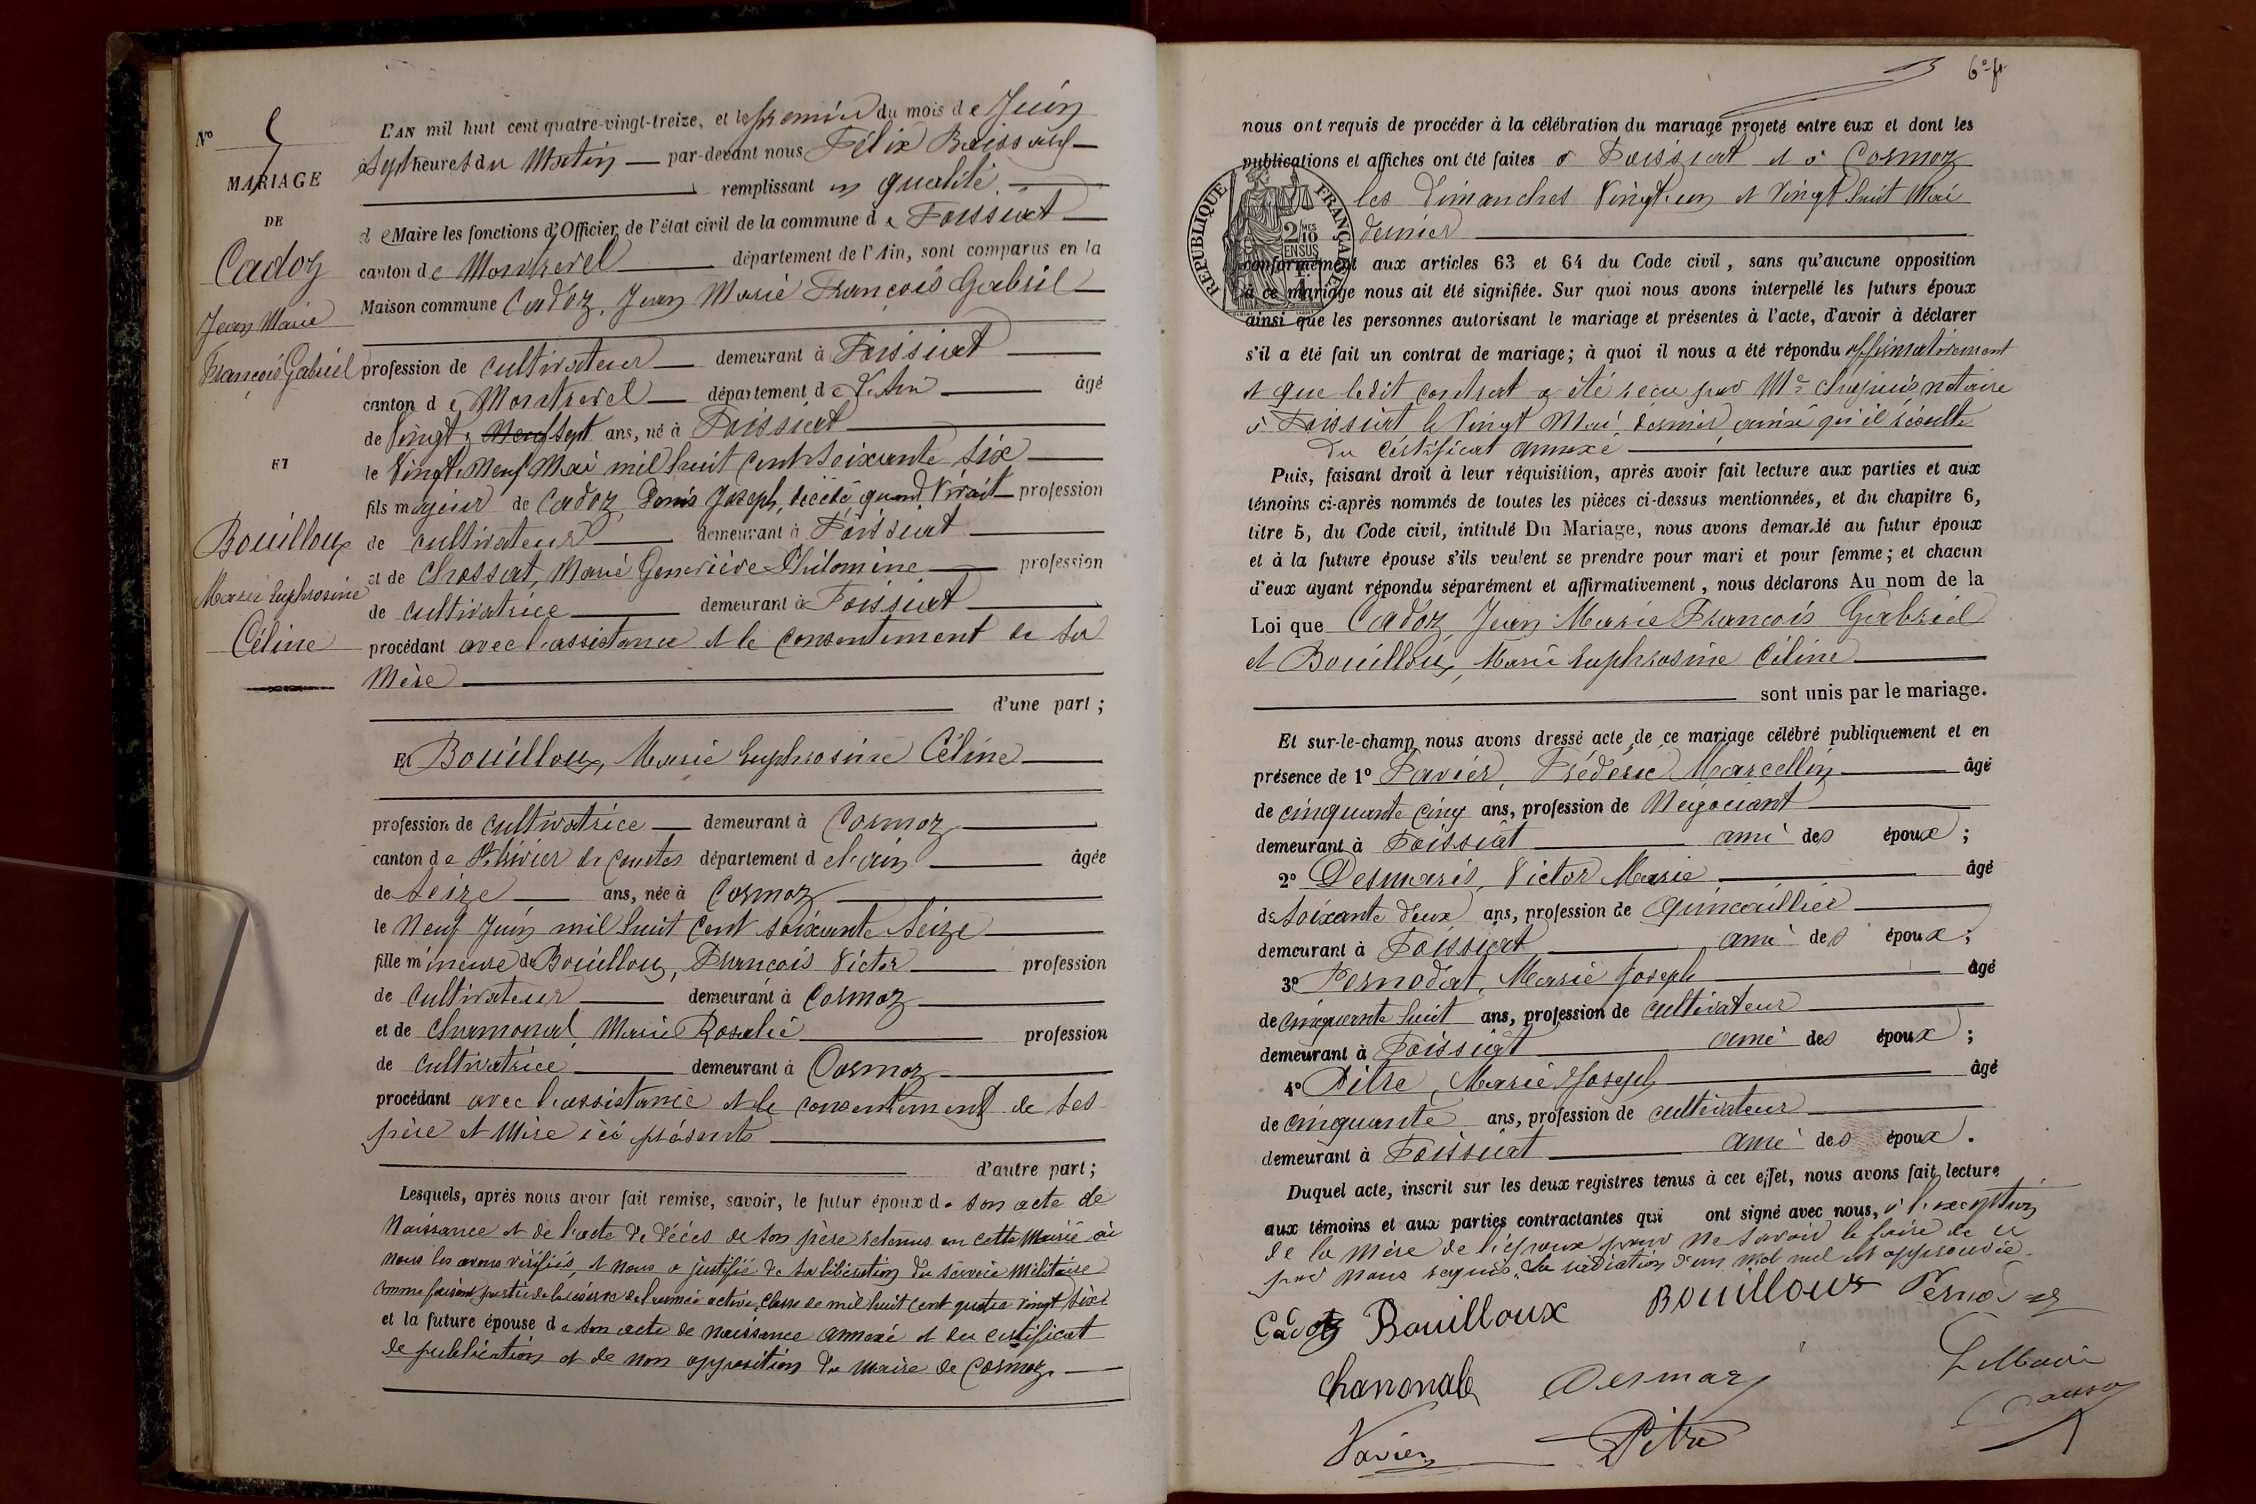 N° 5
MARIAGE
DE
Cadoz
Jean Marie
François Gabriel
ET
Bouilloux
Marie Euphrosine
Céline
L'AN mil huit cent quatre-vingt-treize, et le premier du mois de Juin
à sept heures du Matin par-devant nous Félix
remplissant en qualité
de Maire les fonctions d'Officier de l'état civil de la commune de Foissiat
canton de Montrevel département de l'Ain, sont comparus en la
Maison commune Cadoz, Jean Marie François Gabriel
profession de cultivateur demeurant à Foissiat
canton de Montrevel département de l'Ain âgé
de Vingt Neuf sept ans, né à Foissiat
le Vingt Neuf Mai mil huit cent soixante six
fils majeur de Cadoz, Denis Joseph, décédé quand vivait profession
de cultivateur demeurant à Foissiat
et de Chossat, Marie Geneviève Philomine profession
de cultivatrice demeurant à Foissiat
procédant avec l'assistance et le consentement de sa
Mère
d'une part ;
Et Bouilloux, Marie Euphrosine Céline
profession de cultivatrice demeurant à Cormoz
canton de St Trivier de Courtes département de l'ain âgée
de Seize ans, née à Cormoz
le Neuf Juin mil huit cent soixante seize
fille mineure de Bouilloux, François Victor profession
de cultivateur demeurant à Cormoz
et de Chamonal, Marie Rosalie profession
de cultivatrice demeurant à Cormoz
procédant avec l'assistance et le consentement de ses
père et Mère ici présents
d'autre part ;
Lesquels, après nous avoir fait remise, savoir, le futur époux de son acte de
Naissance et de l'acte de décès de son père retenus en cette Mairie où
nous les avons vérifiés, et nous a justifié de sa libération du service Militaire
comme faisant partie de la réserve de l'armée active, classe de mil huit cent quatre vingt six
et la future épouse de son acte de naissance annexé et du certificat
de publication et de non opposition du maire de Cormoz.
6e ft
nous ont requis de procéder à la célébration du mariage projeté entre eux et dont les
publications et affiches ont été faites à Foissiat et à Cormoz
les Dimanches Vingt un et Vingt huit Mai
dernier
RÉPUBLIQUE FRANÇAISE
2/10 EN SUS
conformément aux articles 63 et 64 du Code civil, sans qu'aucune opposition
à ce mariage nous ait été signifiée. Sur quoi nous avons interpellé les futurs époux
ainsi que les personnes autorisant le mariage et présentes à l'acte, d'avoir à déclarer
s'il a été fait un contrat de mariage ; à quoi il nous a été répondu affirmativement
et que ledit contrat a été reçu par Me notaire
à Foissiat le Vingt Mai dernier, ainsi qu'il résulte
du certificat annexé
Puis, faisant droit à leur réquisition, après avoir fait lecture aux parties et aux
témoins ci-après nommés de toutes les pièces ci-dessus mentionnées, et du chapitre 6,
titre 5, du Code civil, intitulé Du Mariage, nous avons demandé au futur époux
et à la future épouse s'ils veulent se prendre pour mari et pour femme ; et chacun
d'eux ayant répondu séparément et affirmativement, nous déclarons Au nom de la
Loi que Cadoz Jean Marie François Gabriel
et Bouilloux, Marie Euphrosine Céline
sont unis par le mariage.
Et sur-le-champ nous avons dressé acte de ce mariage célébré publiquement et en
présence de 1° Favier, Fréderic Marcellin âgé
de cinquante cinq ans, profession de Négociant
demeurant à Foissiat ami des époux ;
2° Desmaris, Victor Marie âgé
de soixante deux ans, profession de quincaillier
demeurant à Foissiat ami des époux ;
3° Pernodat, Marie Joseph âgé
de cinquante huit ans, profession de cultivateur
demeurant à Foissiat ami des époux ;
4° Pitre, Marie Joseph âgé
de cinquante ans, profession de cultivateur
demeurant à Foissiat ami des époux.
Duquel acte, inscrit sur les deux registres tenus à cet effet, nous avons fait lecture
aux témoins et aux parties contractantes qui ont signé avec nous, à l'exception
de la Mère de l'époux pour ne savoir le faire de ce
par Nous requis. La radiation d'un mot nul est approuvée.
Cadoz Bouilloux Bouilloux
Chanonale Desmaris Le Maire
Favier Pitre